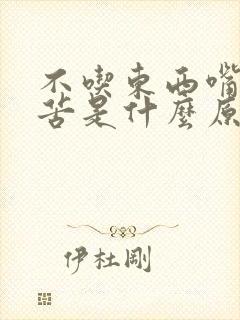 不喫東西嘴
苦是什麼原
伊杜剛